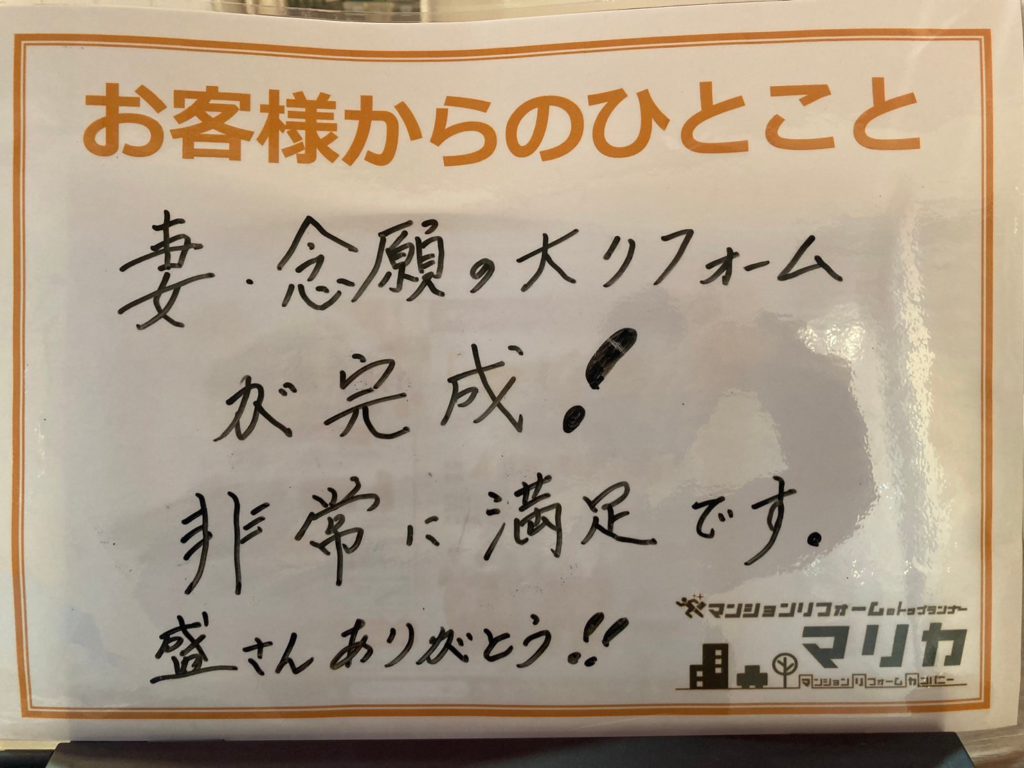 お客様からのひとこと
妻・念願の大リフォーム
が完成!
非常に満足です。
盛さんありがとう!!
マンションリフォームのトップランナー
マリカ
マンションリフォームカンパニー